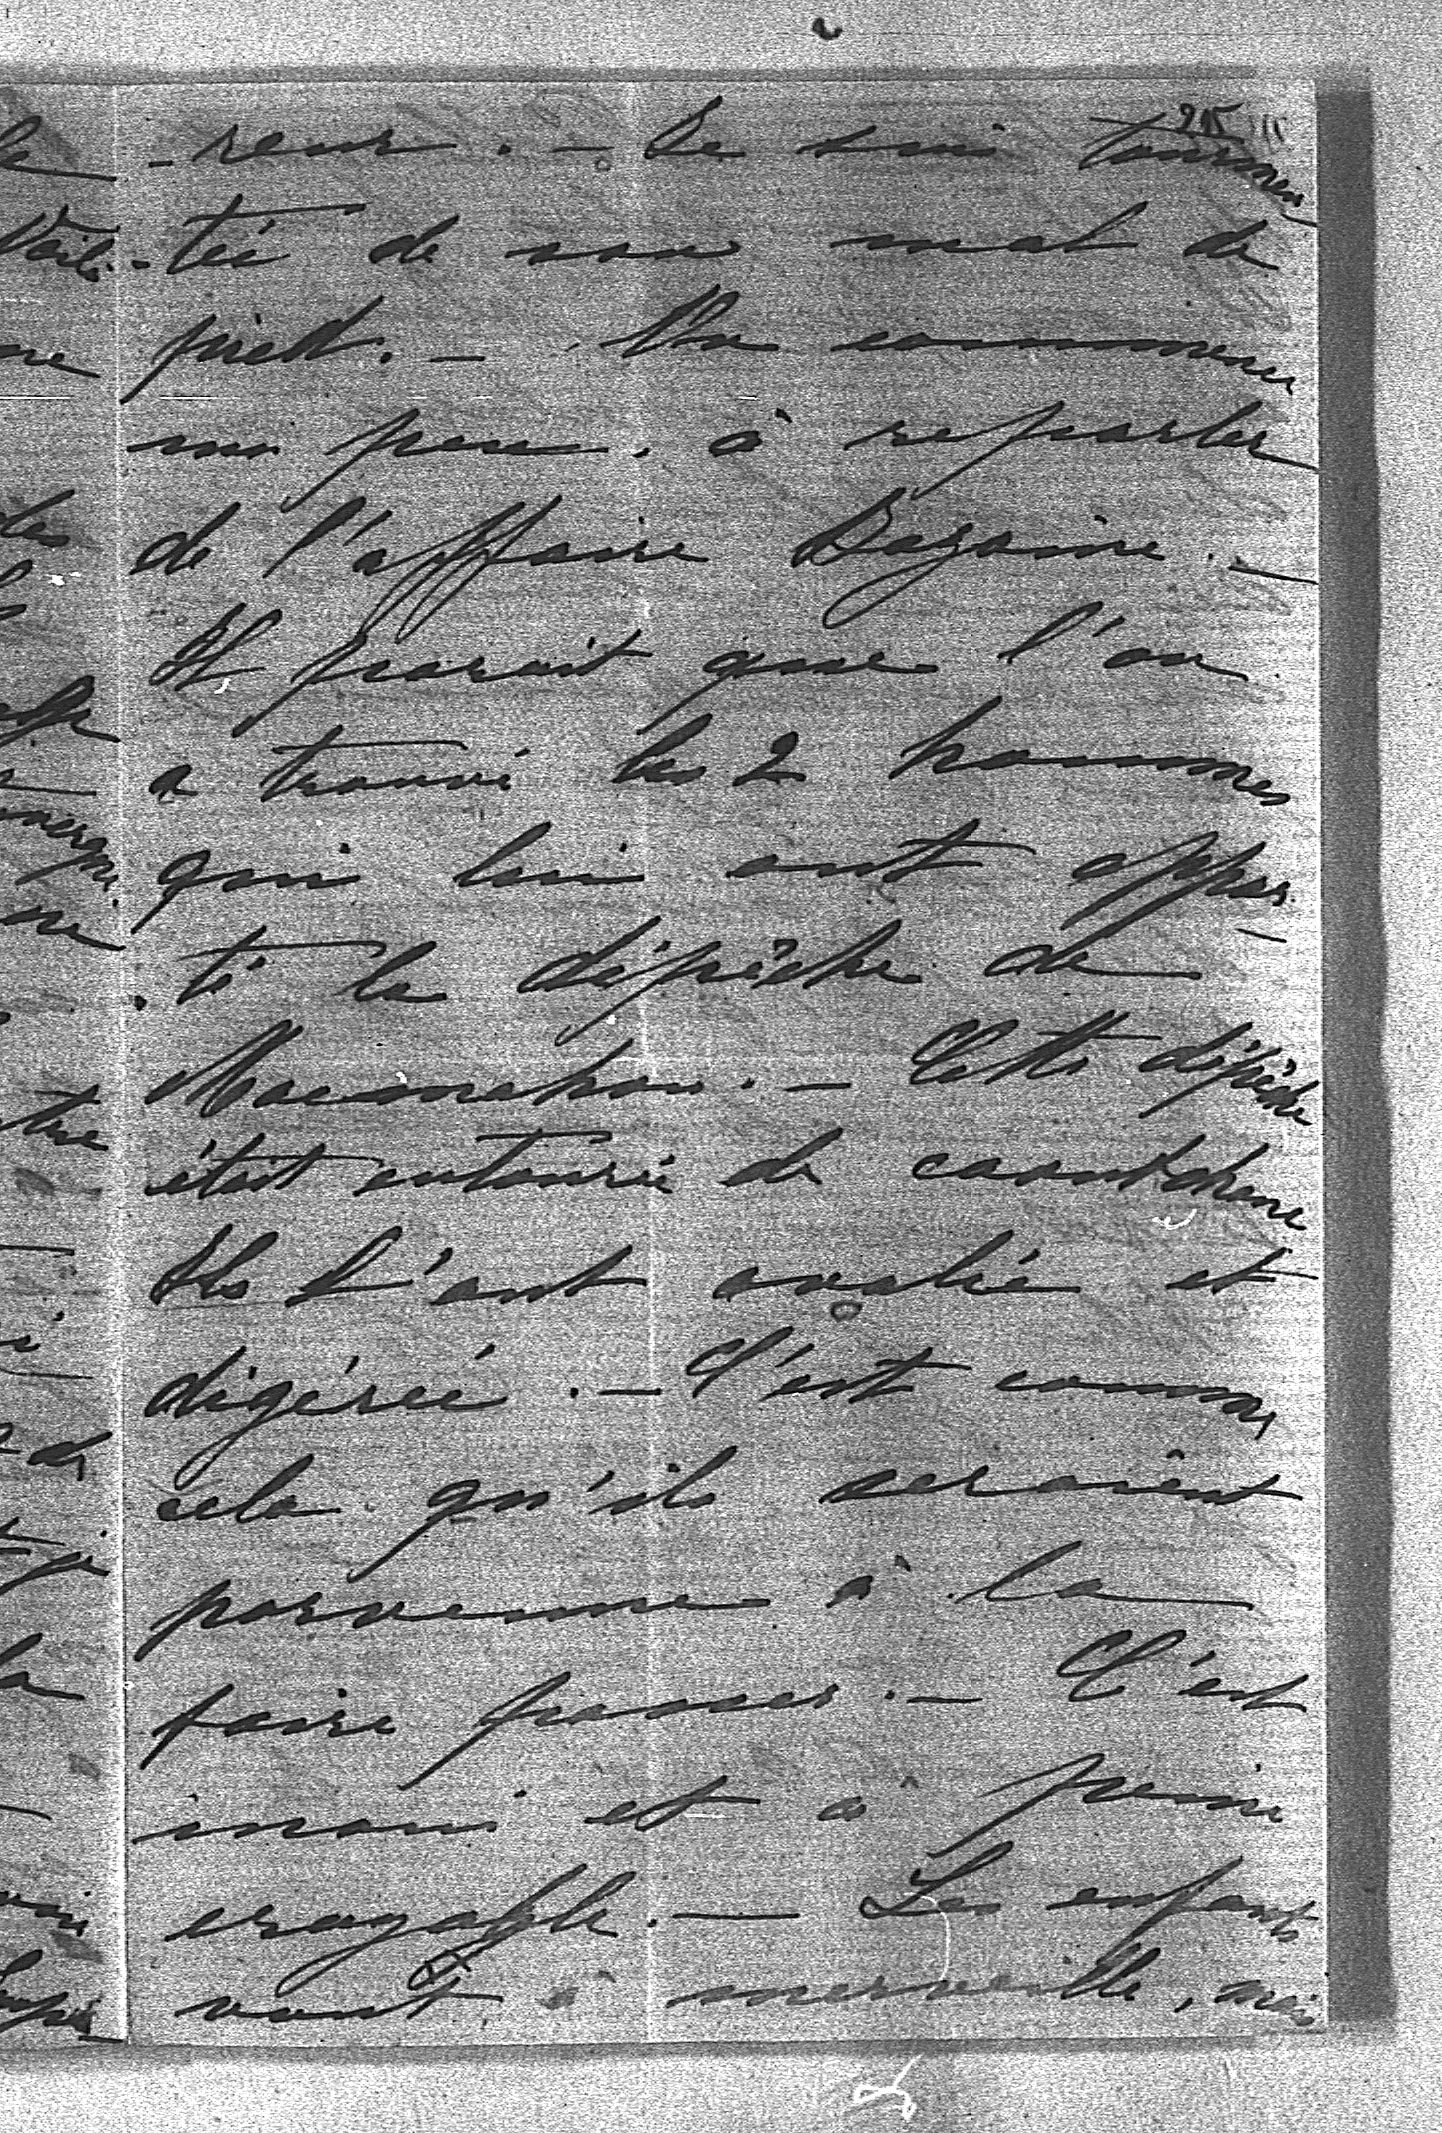 215
-reur. - Je suis tourmen
-tée de son mal de
pied. - On commence
un peu à reparler
de l'affaire Bazaine. -
Il parait que l'on
a trouvé les 2 hommes
qui lui ont appor-
-té la dépêche de
Macmahon. - Cette dépêche
était entourée de caoutchouc
Ils l'ont avalée et
digérée. - C'est comme
cela qu'ils seraient
parvenus à la
faire passer. - C'est
inoui et à peine
croyable. - Les enfants
vont à merveille, mais